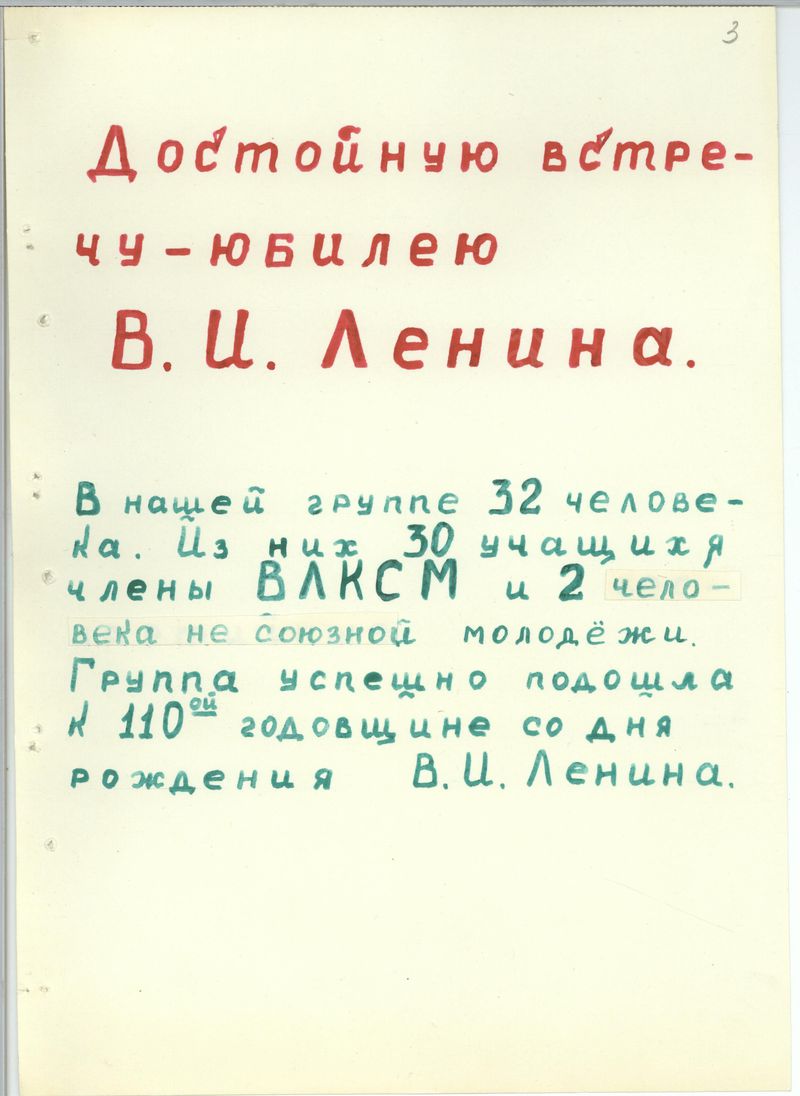 3
Достойную встре-
чу-юбилею
В. И. Ленина.
В нашей группе 32 челове-
ка. Из них 30 учащихя
члены ВЛКСМ и 2 чело-
века не союзной молодёжи.
Группа успешно подошла
к 110ой годовщине со дня
рождения В. И. Ленина.